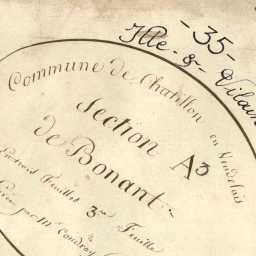 - 35 -
Ille - & - Vilain
Commune de Chatillon en Vendelais
Section A3
de Bonant
Feuillet 3me Feuille
par Mr Coudray